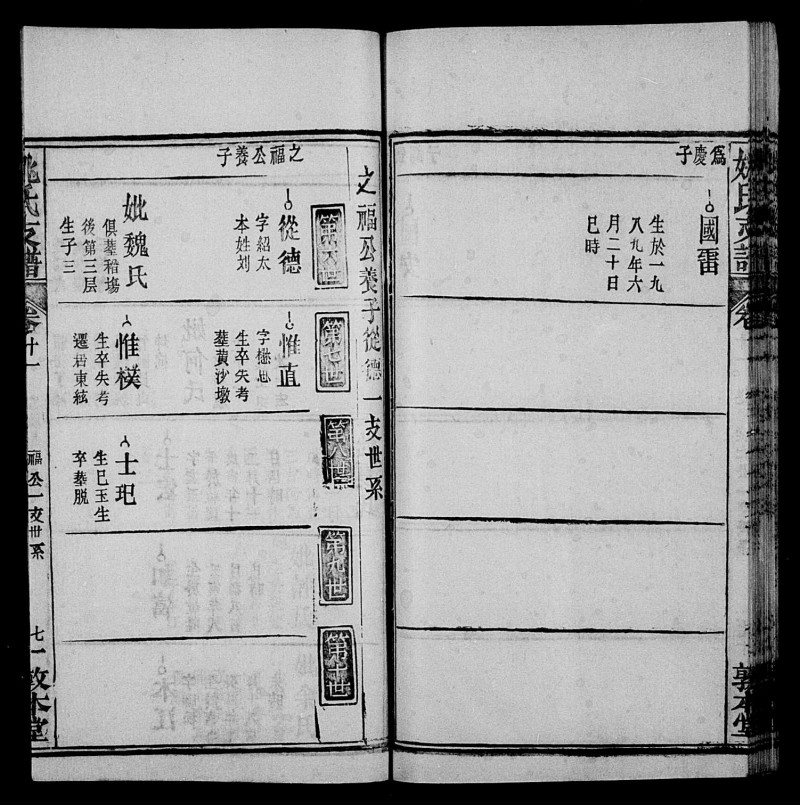 爲慶子
國雷
生於一九
八九年六
月二十日
巳時
之福公養子從德一支世系
第六世
第七世
第八世
第九世
第十世
之福公養子
從德
字紹太
本姓刘
妣魏氏
俱塟稽塲
後第三层
生子三
惟直
字㮠思
生卒失考
塟黄沙墩
惟樸
生卒失考
遷居東絃
士玘
生巳玉生
卒塟脱
氏支譜
卷十一
福公一支世系
七一
敦本堂